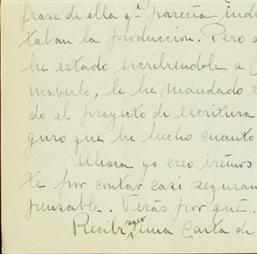 frase de ella q. parecia indi
taban la produccion. Pero
he estado escribiendole a
moverlo, le he mandado
do el proyecto de escritura
guro que he hecho cuanto
Ahora yo creo iremos
te por contar casi seguram
pensable. Verás por qué.
Recibi ayer una carta de